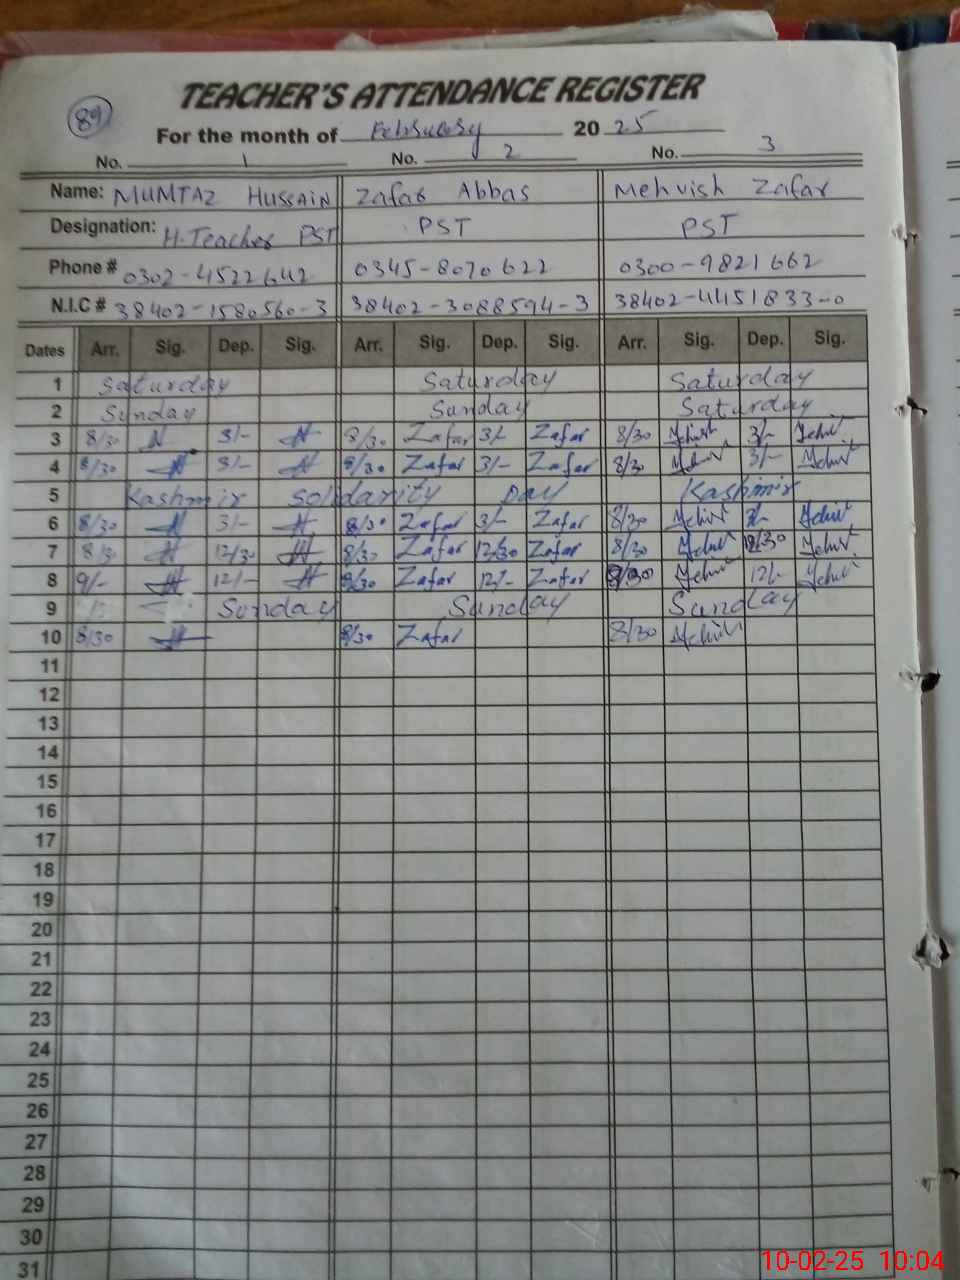 TEACHER'S ATTENDANCE REGISTER
89
For the month of February 2025
No. 1 No. 2 No. 3
Name: MUMTAZ HUSSAIN Zafar Abbas Mehvish Zafar
Designation: H.Teacher PST PST PST
Phone # 0302-4522642 0345-8070622 0300-9821662
N.I.C # 38402-1580560-3 38402-3088594-3 38402-4451833-0
Dates Arr. Sig. Dep. Sig. Arr. Sig. Dep. Sig. Arr. Sig. Dep. Sig.
1 Saturday Saturday Saturday
2 Sunday Sunday Saturday
3 8/30 3/- 8/30 Zafar 3/- Zafar 8/30 3/-
4 8/30 3/- 8/30 Zafar 3/- Zafar 8/30 3/-
5 Kashmir Solidarity Day Kashmir
6 8/30 3/- 8/30 Zafar 3/- Zafar 8/30 3/-
7 8/30 12/30 8/30 Zafar 12/30 Zafar 8/30 12/30
8 9/- 12/- 8/30 Zafar 12/- Zafar 12/-
9 Sunday Sunday Sunday
10 8/30 8/30 Zafar 8/30
11
12
13
14
15
16
17
18
19
20
21
22
23
24
25
26
27
28
29
30
31
10-02-25 10:04